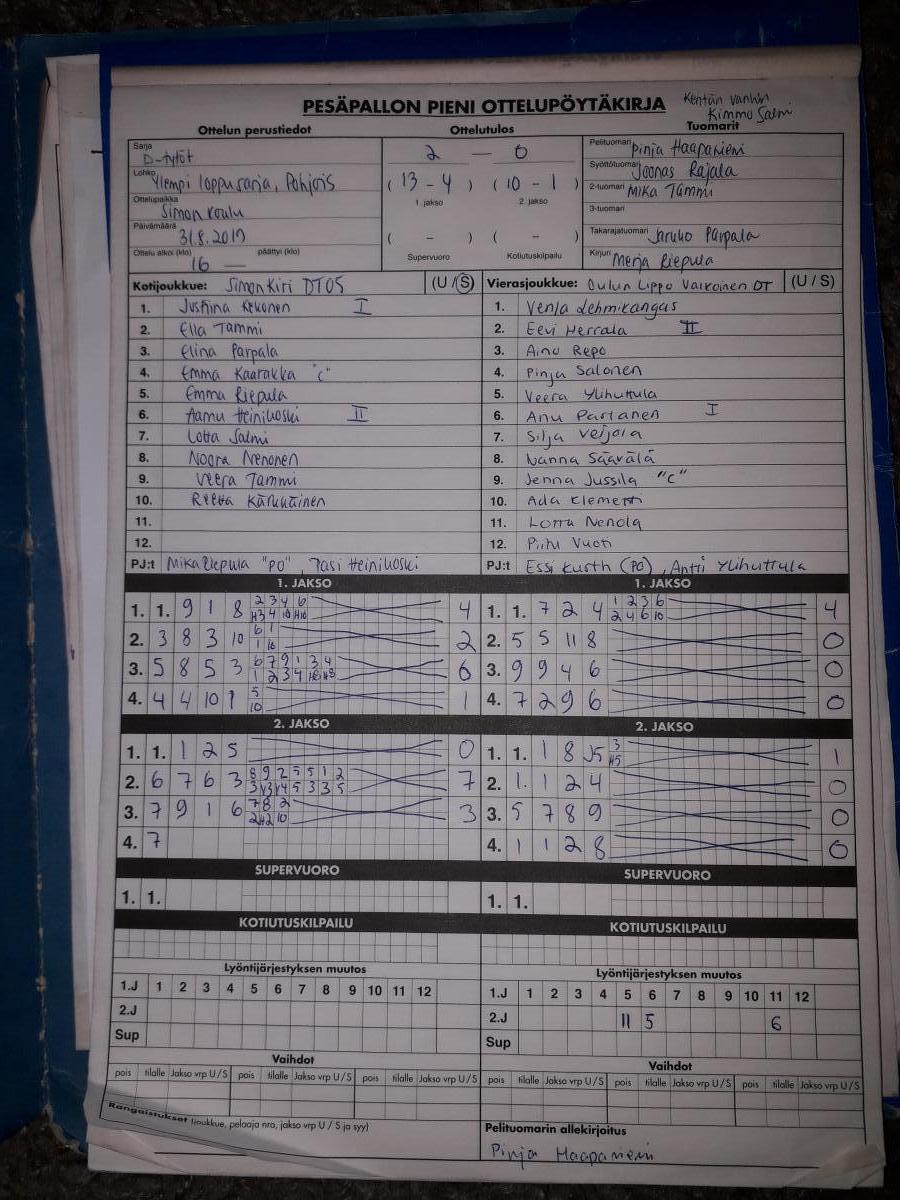 PESÄPALLON PIENI OTTELUPÖYTÄKIRJA
Kentän vanhin
Kimmo Salmi
Ottelun perustiedot Ottelutulos Tuomarit
Sarja D-tytöt
Lohko Ylempi loppusarja, Pohjois
Ottelupaikka Simon koulu
Päivämäärä 31.8.2017
Ottelu alkoi (klo) 16 — päättyi (klo)
2 — 0
( 13 - 4 ) ( 10 - 1 )
1. jakso 2. jakso
( - ) ( - )
Supervuoro Kotiutuskilpailu
Pelituomari Pinja Haapaniemi
Syöttötuomari Joonas Rajala
2-tuomari Mika Tammi
3-tuomari
Takarajatuomari Jaruko Parpala
Kirjuri Merja Riepula
Kotijoukkue: Simon Kiri DT05 (U / S)
1. Justiina Kekonen I
2. Ella Tammi
3. Elina Parpala
4. Emma Kaarakka "C"
5. Emma Riepula
6. Aamu Heinikoski II
7. Lotta Salmi
8. Noora Nenonen
9. Veera Tammi
10. Reetta Kärkkäinen
11.
12.
PJ:t Mika Riepula "PO", Pasi Heinikoski
Vierasjoukkue: Oulun Lippo Valkoinen DT (U / S)
1. Venla Lehmikangas
2. Eevi Herrala II
3. Aino Repo
4. Pinja Salonen
5. Veera Ylihuttula
6. Anu Partanen I
7. Silja Veijola
8. Nanna Säävälä
9. Jenna Jussila "C"
10. Ada Klemetti
11. Lotta Nenola
12. Piitu Vuoti
PJ:t Essi Kurth (PO), Antti Ylihuttula
1. JAKSO
1. 1. 9 1 8 2 3 4 6 4
H3 4 10 H10
2. 3 8 3 10 6 1 2
1 10
3. 5 8 5 3 6 7 9 1 3 4 6
1 2 3 4
4. 4 4 10 1 5 1
10
2. JAKSO
1. 1. 1 2 5 0
2. 6 7 6 3 8 9 2 5 5 1 2 7
3. 7 9 1 6 7 8 2 3
2 H2 10
4. 7
SUPERVUORO
1. 1.
KOTIUTUSKILPAILU
Lyöntijärjestyksen muutos
1.J 1 2 3 4 5 6 7 8 9 10 11 12
2.J
Sup
Vaihdot
pois tilalle Jakso vrp U/S pois tilalle Jakso vrp U/S pois tilalle Jakso vrp U/S
Rangaistukset (joukkue, pelaaja nro, jakso vrp U / S ja syy)
1. JAKSO
1. 1. 7 2 4 1 2 3 6 4
2 4 6 10
2. 5 5 11 8 0
3. 9 9 4 6 0
4. 7 2 9 6 0
2. JAKSO
1. 1. 1 8 J5 3 1
H5
2. 1. 1 2 4 0
3. 5 7 8 9 0
4. 1 1 2 8 0
SUPERVUORO
1. 1.
KOTIUTUSKILPAILU
Lyöntijärjestyksen muutos
1.J 1 2 3 4 5 6 7 8 9 10 11 12
2.J 11 5 6
Sup
Vaihdot
pois tilalle Jakso vrp U/S pois tilalle Jakso vrp U/S pois tilalle Jakso vrp U/S
Pelituomarin allekirjoitus
Pinja Haapaniemi